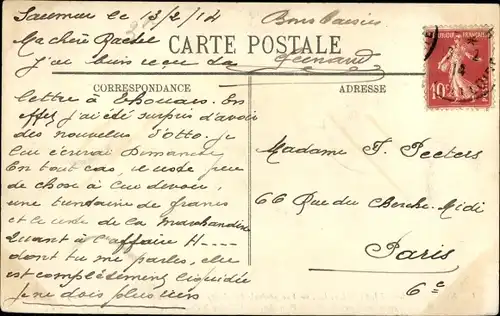 Saumur le 13/2/14
Bons baisers
Ma chère Rachel
CARTE POSTALE
J'ai bien reçu ta
Fernand
CORRESPONDANCE
ADRESSE
lettre à Thouars. En
effet j'ai été surpris d'avoir
des nouvelles d'Otto. Je
lui écrirai Dimanche
En tout cas, il reste peu
de chose à lui devoir,
une trentaine de francs
et le reste de la marchandise
Quant à l'affaire H----
dont tu me parles, elle
est complètement liquidée
je ne dois plus rien
Madame J. Peeters
66 Rue du Cherche-Midi
Paris
6e
10